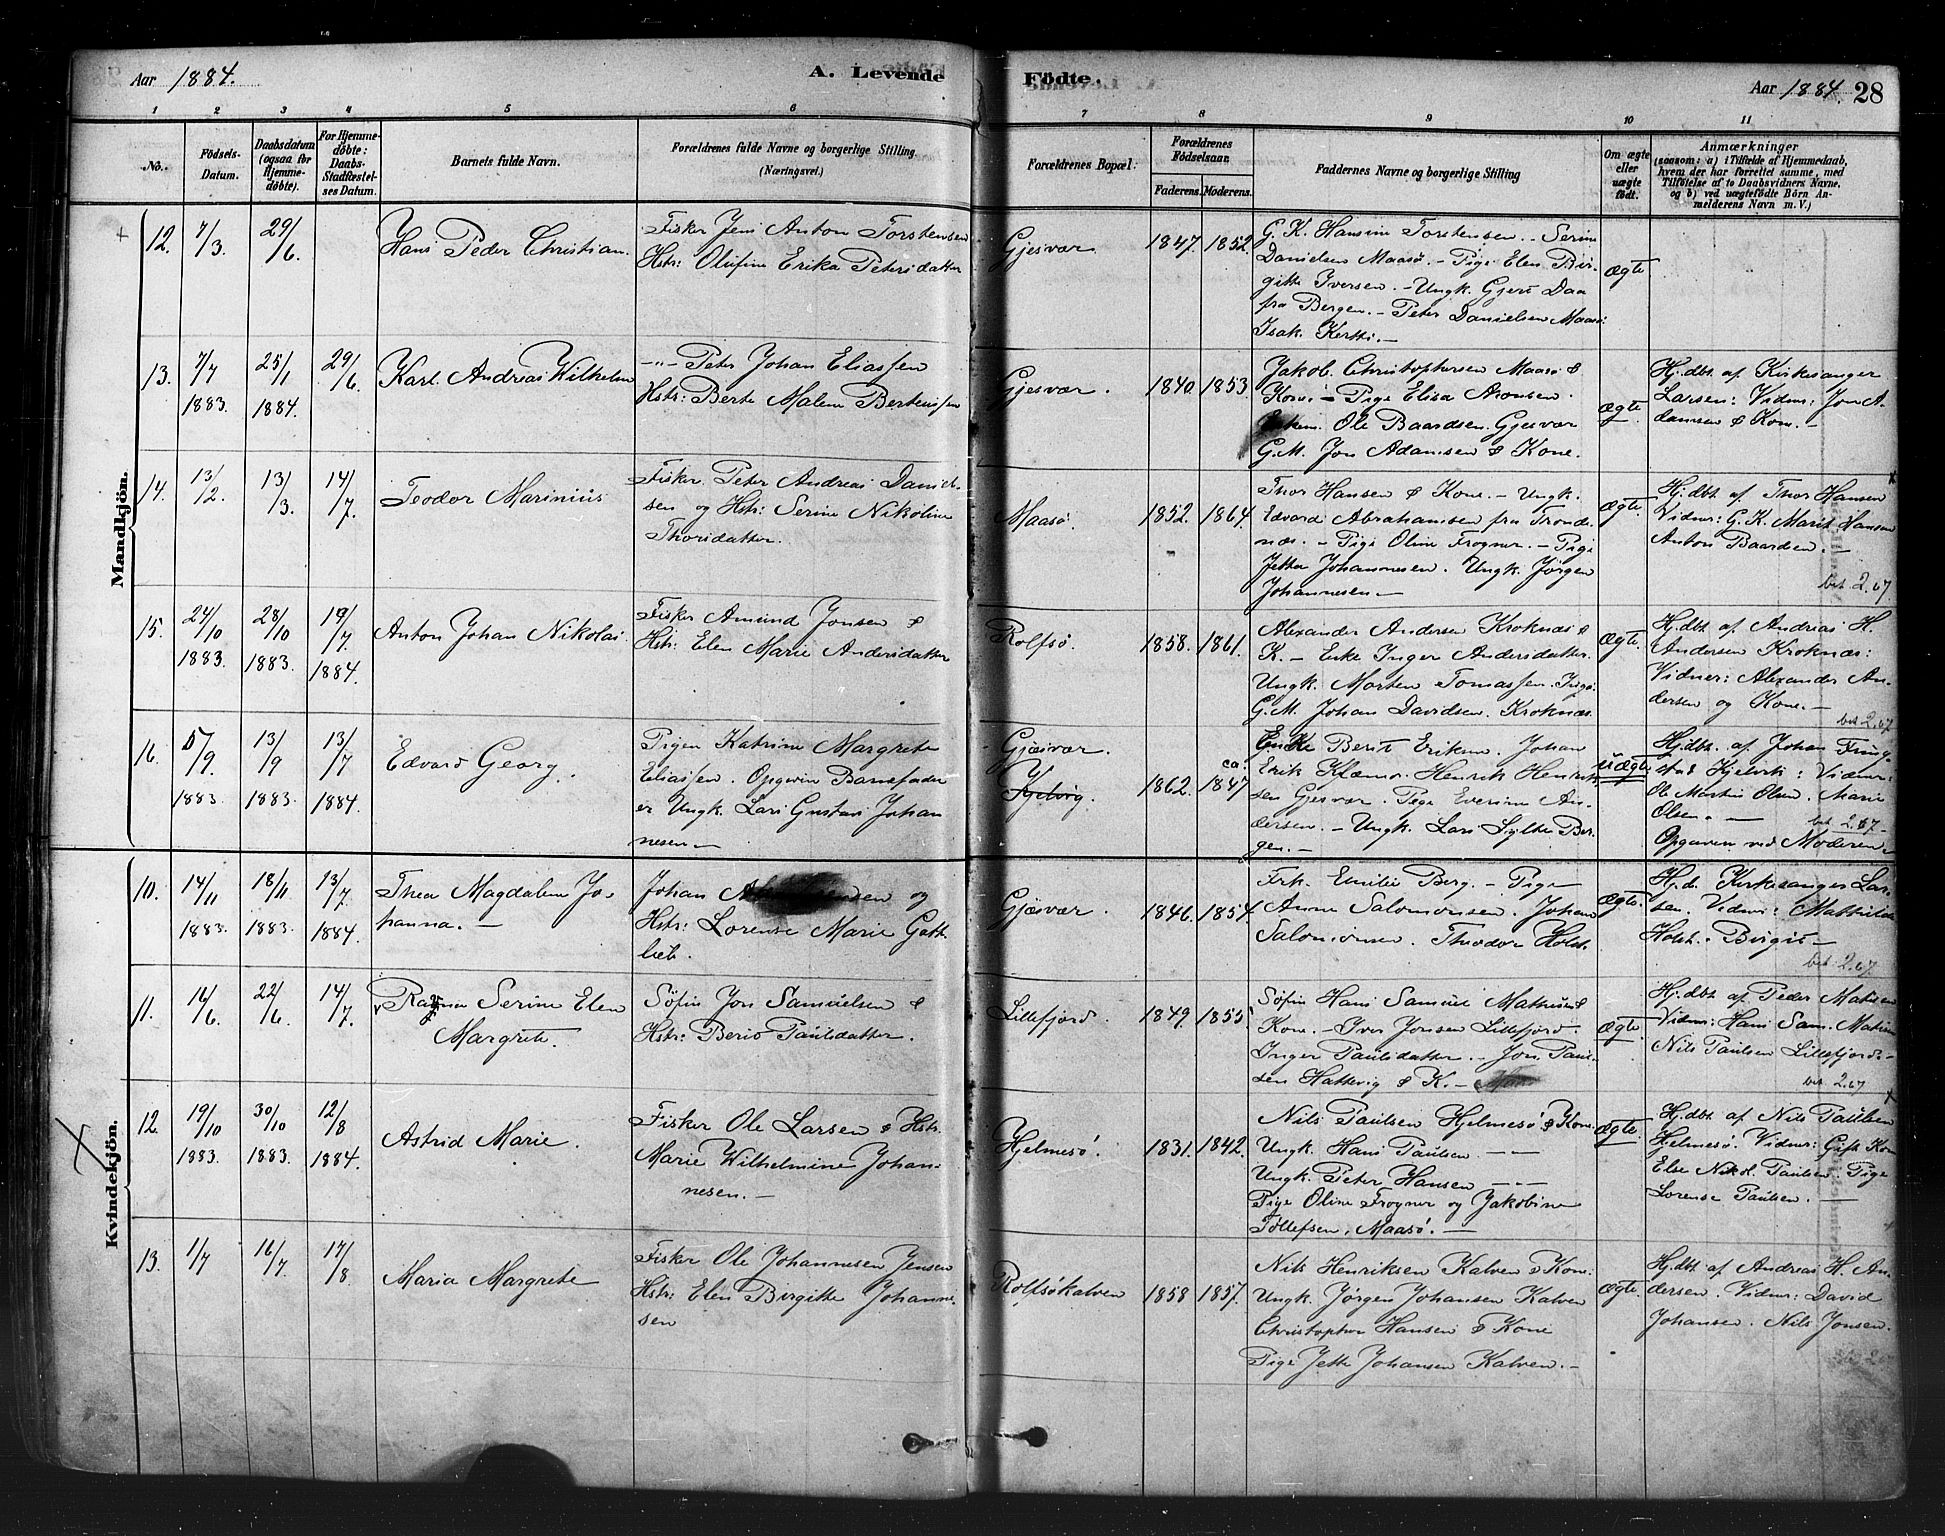 Aar 1884.
A. Levende
Födte.
Aar 1884. 28
1 2 3 4 5 6 7 8 9 10 11
No.
Födsels-Datum.
Daabsdatum (ogsaa for Hjemmedöbte).
For Hjemmedöbte: Daabs-Stadfæstelses Datum.
Barnets fulde Navn.
Forældrenes fulde Navne og borgerlige Stilling. (Næringsvei.)
Forældrenes Bopæl:
Forældrenes Födselsaar.
Faderens. Moderens.
Faddernes Navne og borgerlige Stilling
Om ægte eller uægte födt.
Anmærkninger
(saasom: a) i Tilfælde af Hjemmedaab, hvem der har forrettet samme, med Tilföielse af to Daabsvidners Navne, og b) ved uægtefödte Börn Anmelderens Navn m. V.)
Mandkjön.
12. 7/3 29/6
Hans Peder Christian.
Fisker Jens Anton Torstensen
Hstr: Olufine Erika Petersdatter
Gjesvær. 1847. 1852.
G. K. Hansine Torstensen. - Serine
Danielsen Maasø. - Pige Elen Bir-
gitte Iversen. - Ungk. Gjert Daa
fra Bergen. - Peter Danielsen Maasø.
Isak Kertti. -
Ægte
13. 7/7 1883. 25/1 1884. 29/6
Karl Andreas Wilhelm
-"- Peter Johan Eliassen
Hstr: Berte Malene Berthensen
Gjesvær. 1840. 1853.
Jakob Christophersen Maasø &
Kone - Pige Elisa Aronsen.
Ole Baardsen Gjesvær
G.M. Jon Adamsen & Kone.
Ægte
Hj.dbt. af Kirkesanger
Larsen: Vidner: Jon A-
damsen & Kone. -
14. 13/2 13/3 14/7
Teodor Marinius
Fisker Peter Andreas Daniel-
sen og Hstr: Serine Nikoline
Thorsdatter.
Maasø. 1852. 1864.
Thor Hansen & Kone. - Ungk.
Edvard Abrahamsen fra Tronde-
næs. - Pige Oline Frogner. - Pige
Jette Johannesen. Ungk. Jørgen
Johannesen. -
Ægte
Hj.dbt. af Thor Hansen
Vidner: G. K. Marit Hansen
Anton Baardsen. -
bet 2.67
15. 24/10 1883. 28/10 1883. 19/7 1884.
Anton Johan Nikolai.
Fisker Amund Jonsen &
Hstr: Elen Marie Andersdatter
Rolfsø. 1858. 1861.
Alexander Andersen Kroknæs &
K. - Enke Inger Andersdatter.
Ungk. Morten Tomassen Ingø.
G.M. Johan Davidsen. Kroknæs.
Ægte
Hj.dbt. af Andreas H.
Andersen Kroknæs:
Vidner: Alexander An-
dersen og Kone. -
bet 2.67
16. 5/9 1883. 13/9 1883. 13/7 1884.
Edvard Georg.
Pigen Katrine Margrete
Eliassen. Opgiven Barnefader
er Ungk. Lars Gustav Johan-
nesen. -
Gjesvær.
Kjelvig. 1862. ca. 1847
Enke Berit Eriksen. Johan
Erik Klemo. Henrik Henrik-
sen Gjesvær. Pige Everine An-
dersen. - Ungk. Lars Lylte Ber-
gen. -
Uægte
Hj.dbt. af Johan Fring-
stad Kjelvik: Vidner:
Ole Martin Olsen. Marie
Olsen. -
bet 2.67
Opgiven ved Moderen
Kvindekjön.
10. 14/11 1883. 18/11 1883. 13/7 1884.
Thea Magdalene Jo-
hanna. -
Johan og
Hstr: Lorense Marie Gott-
lieb.
Gjøsvær. 1846. 1854.
Frk. Emilie Berg. - Pige
Anne Salomonsen. Johan
Salomonsen. Theodor Holst.
Ægte.
Hj.d. Kirkesanger Lar-
sen. Vidner: Mathilde
Holst. Birgit -
bet 2.67
11. 16/6 22/6 14/7
Ragna Serine Elen
Margrete.
Søfin Jon Samuelsen &
Hstr: Berit Paulsdatter.
Lillefjord. 1849. 1855.
Søfin Hans Samuel Mathisen &
Kone. - Iver Jonsen Lillefjord
Inger Paulsdatter. - Jon Paul-
sen Hattevig & K. -
Ægte
Hj.dbt. af Peder Matisen
Vidner: Hans Sam. Matisen
Nils Paulsen Lillefjord. -
bet 2.67
12. 19/10 1883. 30/10 1883. 12/8 1884.
Astrid Marie.
Fisker Ole Larsen & Hstr.
Marie Wilhelmine Johan-
nesen. -
Hjelmesø. 1831. 1842.
Nils Paulsen Hjelmesø & Kone.
Ungk. Hans Paulsen. - -
Ungk. Peter Hansen - - -
Pige Oline Frogner og Jakobine
Tollefsen, Maasø. -
Ægte
Hj.dbt. af Nils Paulsen
Hjelmesø. Vidner: Gift Kone
Else Nikol. Paulsen Pige
Lorense Paulsen. -
13. 1/7 16/7 17/8
Maria Margrete
Fisker Ole Johannesen Jensen
Hstr: Elen Birgitte Johanne-
sen
Rolfsøkalven 1858 1857.
Nils Henriksen Kalven & Kone.
Ungk. Jørgen Johansen Kalven
Christopher Hansen & Kone
Pige Jette Johansen Kalven. -
Ægte.
Hj.dbt af Andreas H. An-
dersen. Vidner: David
Johansen. Nils Jonsen.